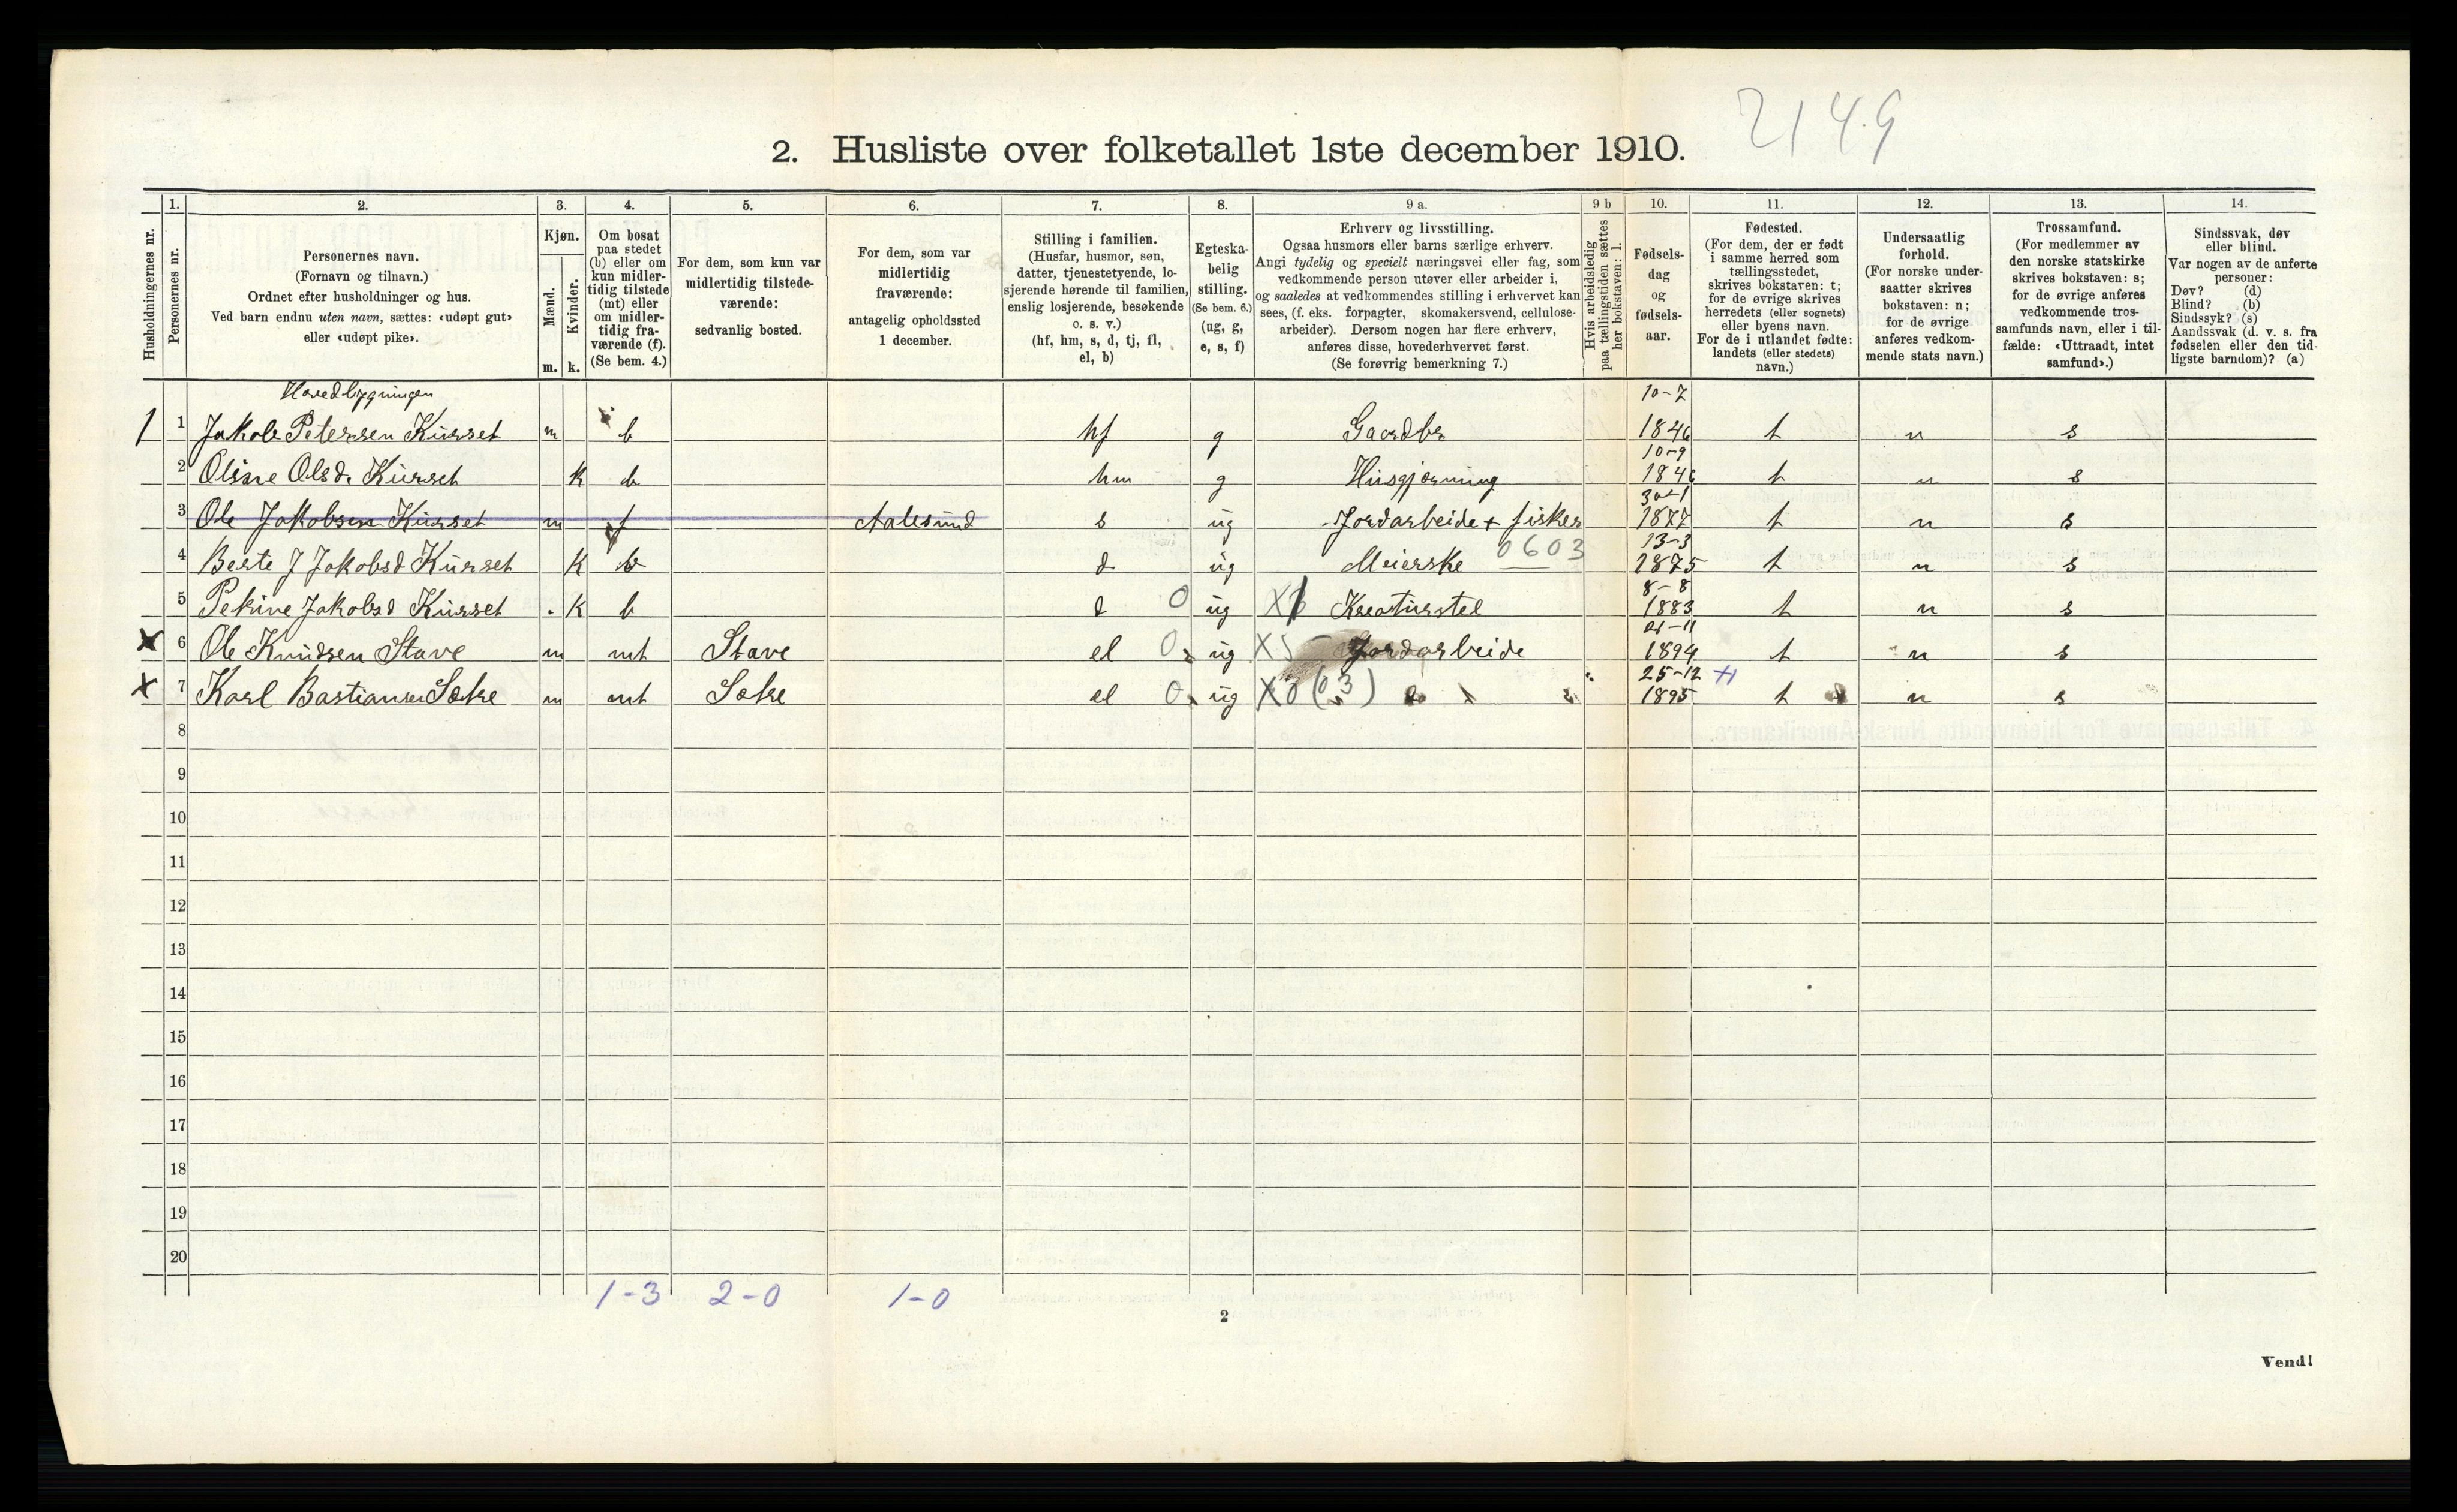 2149
2. Husliste over folketallet 1ste december 1910.
Husholdningernes nr.
1.
Personernes nr.
2.
Personernes navn.
(Fornavn og tilnavn.)
Ordnet efter husholdninger og hus.
Ved barn endnu uten navn, sættes: «udøpt gut»
eller «udøpt pike».
3.
Kjøn.
Mænd.
Kvinder.
m. k.
4.
Om bosat
paa stedet
(b) eller om
kun midler-
tidig tilstede
(mt) eller
om midler-
tidig fra-
værende (f).
(Se bem. 4.)
5.
For dem, som kun var
midlertidig tilstede-
værende:
sedvanlig bosted.
6.
For dem, som var
midlertidig
fraværende:
antagelig opholdssted
1 december.
7.
Stilling i familien.
(Husfar, husmor, søn,
datter, tjenestetyende, lo-
sjerende hørende til familien,
enslig losjerende, besøkende
o. s. v.)
(hf, hm, s, d, tj, fl,
el, b)
8.
Egteska-
belig
stilling.
(Se bem. 6.)
(ug, g,
e, s, f)
9 a.
Erhverv og livsstilling.
Ogsaa husmors eller barns særlige erhverv.
Angi tydelig og specielt næringsvei eller fag, som
vedkommende person utøver eller arbeider i,
og saaledes at vedkommendes stilling i erhvervet kan
sees, (f. eks. forpagter, skomakersvend, cellulose-
arbeider). Dersom nogen har flere erhverv,
anføres disse, hovederhvervet først.
(Se forøvrig bemerkning 7.)
9 b
Hvis arbeidsledig
paa tællingstiden sættes
her bokstaven: l.
10.
Fødsels-
dag
og
fødsels-
aar.
11.
Fødested.
(For dem, der er født
i samme herred som
tællingsstedet,
skrives bokstaven: t;
for de øvrige skrives
herredets (eller sognets)
eller byens navn.
For de i utlandet fødte:
landets (eller stedets)
navn.)
12.
Undersaatlig
forhold.
(For norske under-
saatter skrives
bokstaven: n;
for de øvrige
anføres vedkom-
mende stats navn.)
13.
Trossamfund.
(For medlemmer av
den norske statskirke
skrives bokstaven: s;
for de øvrige anføres
vedkommende tros-
samfunds navn, eller i til-
fælde: «Uttraadt, intet
samfund».)
14.
Sindssvak, døv
eller blind.
Var nogen av de anførte
personer:
Døv? (d)
Blind? (b)
Sindssyk? (s)
Aandssvak (d. v. s. fra
fødselen eller den tid-
ligste barndom)? (a)
Hovedbygningen
1 1 Jakob Petersen Kurset m b hf g Gaardbr 10-7 1846 t n s
2 Olsine Olsd. Kurset k b hm g Husgjerning 10-9 1846 t n s
3 Ole Jakobsen Kurset m f Aalesund s ug Jordarbeide + fisker 30-1 1877 t n s
4 Berte J Jakobsd Kurset K b d ug Meierske 0603 13-3 1875 t n s
5 Pekine Jakobsd Kurset K b d 0 ug Kreaturstel 8-8 1883 t n s
x 6 Ole Knudsen Stave m mt Stave el 0 ug X5 Jordarbeide 21-11 1894 t n s
x 7 Karl Bastiansen Sætre m mt Sætre el 0 ug X0 (03) 25-12 1895 t n s
8
9
10
11
12
13
14
15
16
17
18
19
20
1-3 2-0 1-0
2
Vend!